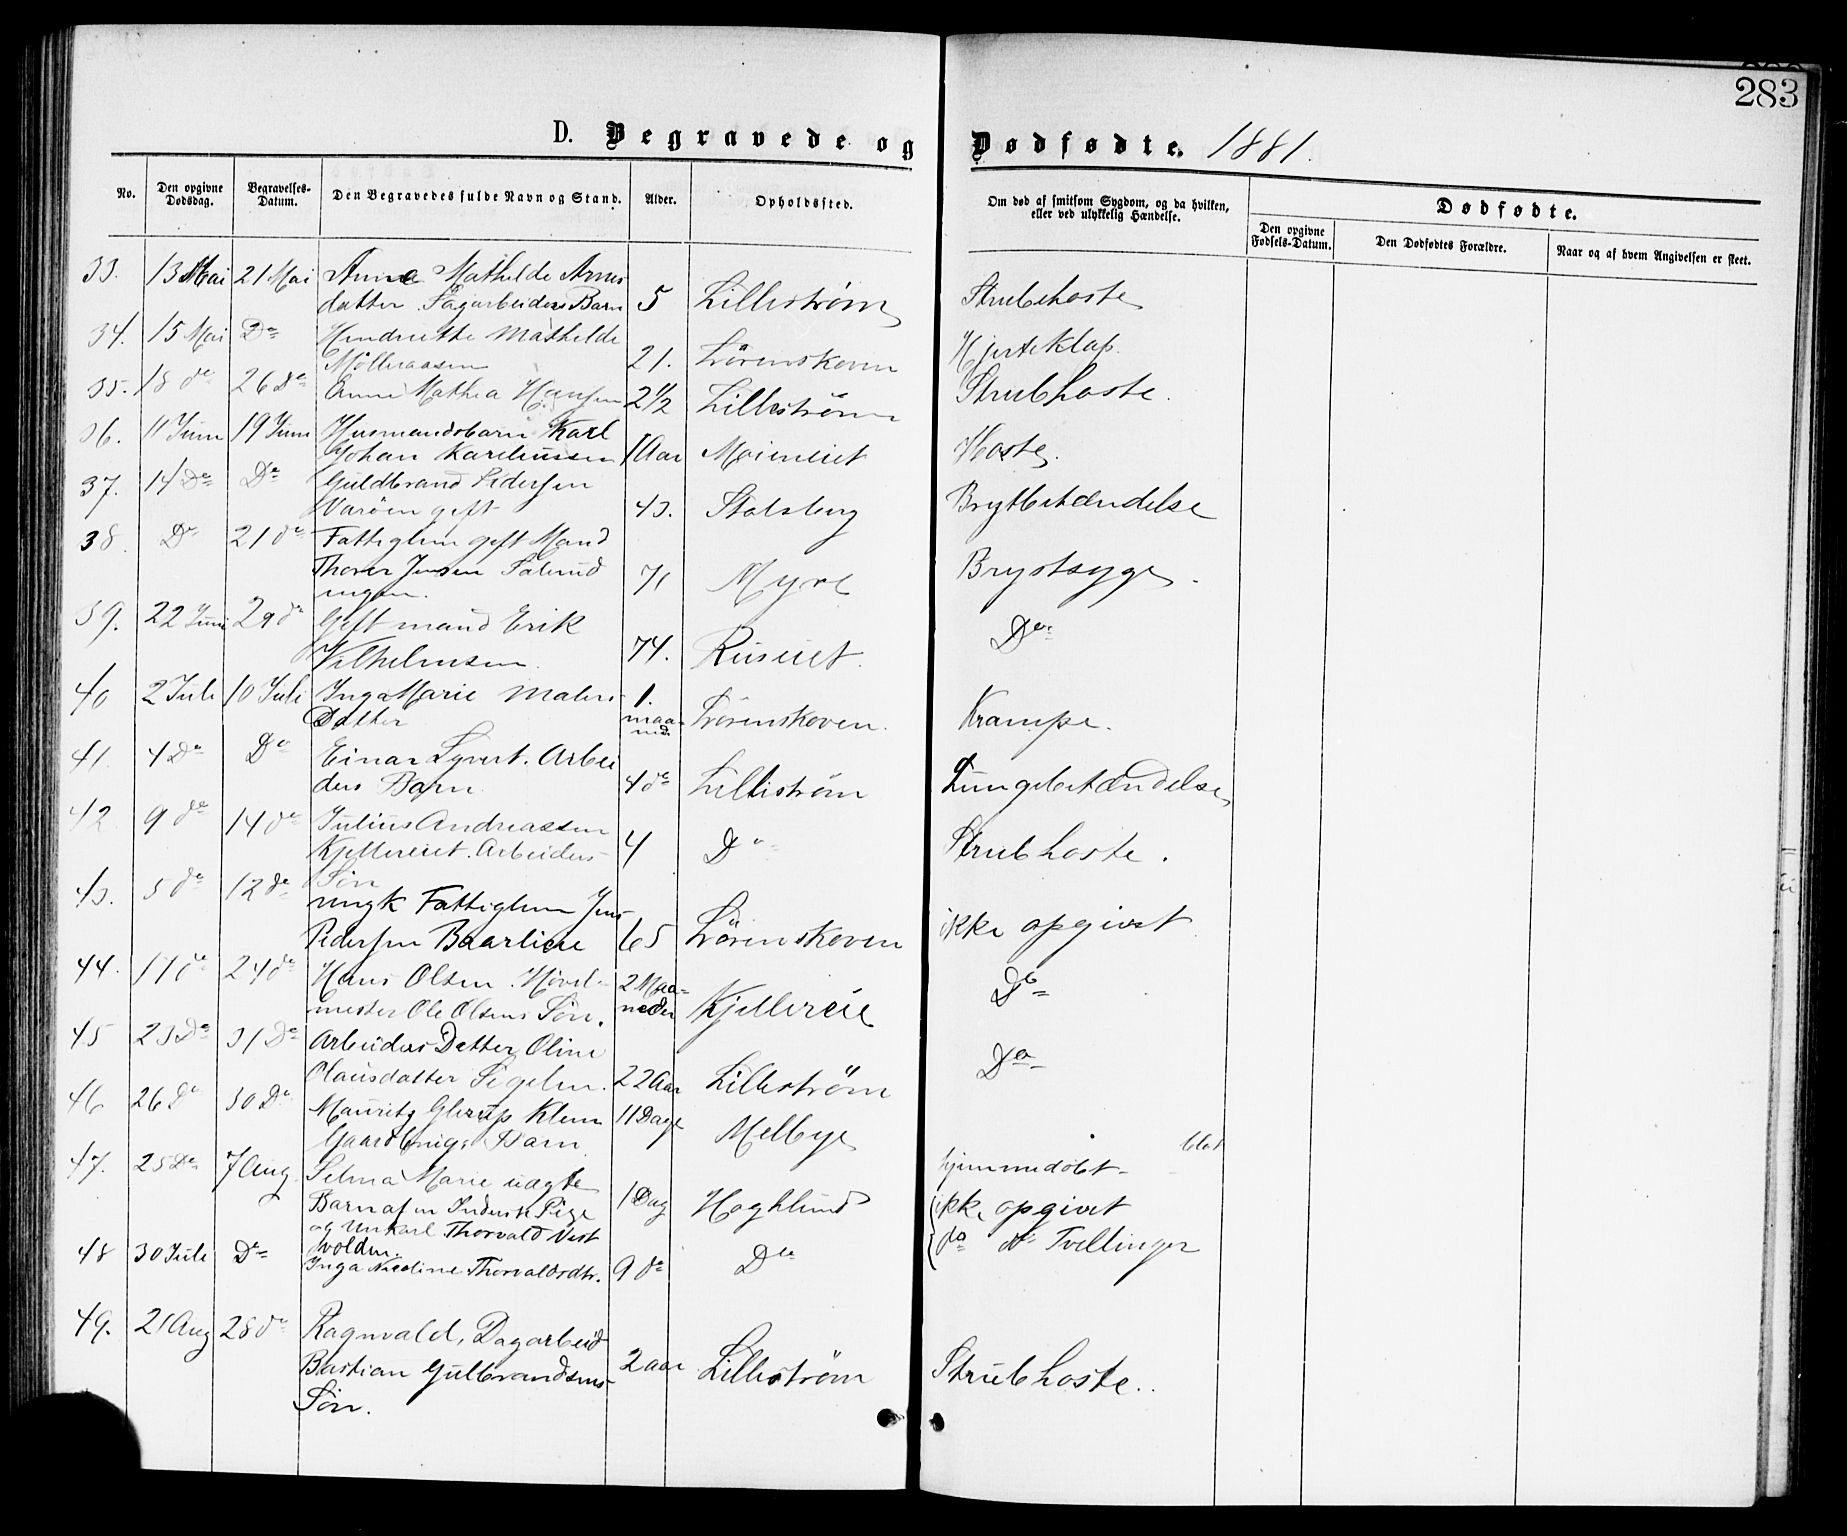 283
D. Begravede og Dødfødte. 1881.
No. Den opgivne Dødsdag. Begravelses-Datum. Den Begravedes fulde Navn og Stand. Alder. Opholdssted. Om død af smitsom Sygdom, og da hvilken, eller ved ulykkelig Hændelse. Dødfødte.
Den opgivne Fødsels-Datum. Den Dødfødtes Forældre. Naar og af hvem Angivelsen er skeet.
33. 13 Mai 21 Mai Anna Mathilde Arnes
datter. Sagarbeiders Barn 5 Lillestrøm Strubehoste
34. 15 Mai Do Hendriette Mathilde
Møllenaasen 21. Lørenskoven Hjerteklap.
35. 18 do 26 Do Anne Mathea Hansen 2 1/2 Lillestrøm Strubhoste.
36. 11 Juni 19 Juni Husmandsbarn Karl
Johan Kareliussen 1 Aar Moieneiet Hoste.
37. 14 Do Do Guldbrand Pedersen
Varøen gift 43. Stalsberg Brystbetændelse
38. Do 21 do Fattiglem gift Mand
Thorer Jensen Solerud
ungen. 71 Myre Brystsyge.
39. 22 Juni 29 do Gift mand Erik
Vilhelmsen. 74. Ruseiet. Do
40 2 Juli 10 Juli Inga Marie Malers
Datter 1. maaned. Lørenskoven. Krampe.
41. 4 Do Do Einar Syvert. Arbei
ders Barn. 4 do Lillestrøm Lungebetændelse
42 9 do 14 do Julius Andreassen
Kjellereiet. Arbeiders
Søn 4 Do Strubhoste.
43. 5 do 12 do ungk Fattiglem Jens
Pedersen Baarlieie 65 Lørenskoven ikke opgivet
44. 17 do 24 do Hans Olsen. Høvel-
mester Ole Olsens Søn. 2 Maa-neder Kjellereie Do
45 23 Do 31 Do Arbeiders Datter Oline
Olausdatter Sigelen. 22 Aar Lillestrøm Do
46 26 Do 30 Do Mauritz Glerup Klem
Gaardbrugs Barn. 11 Dage Melbye
47. 25 Do 7 Aug Selma Marie uægte
Barn af en Inderst. Pige
og Unkarl Thorvald Vest
volden. 1 Dag Haghlund hjemmedøbt - blot
ikke opgivet
48 30 Juli Do Inga Nicoline Thorvaldsdtr. 9 do Do do do Tvillinger
49. 21 Aug 28 do Ragnvald, Dagarbeid
Bastian Gulbrandsens
Søn. 2 aar Lillestrøm Strubhoste.